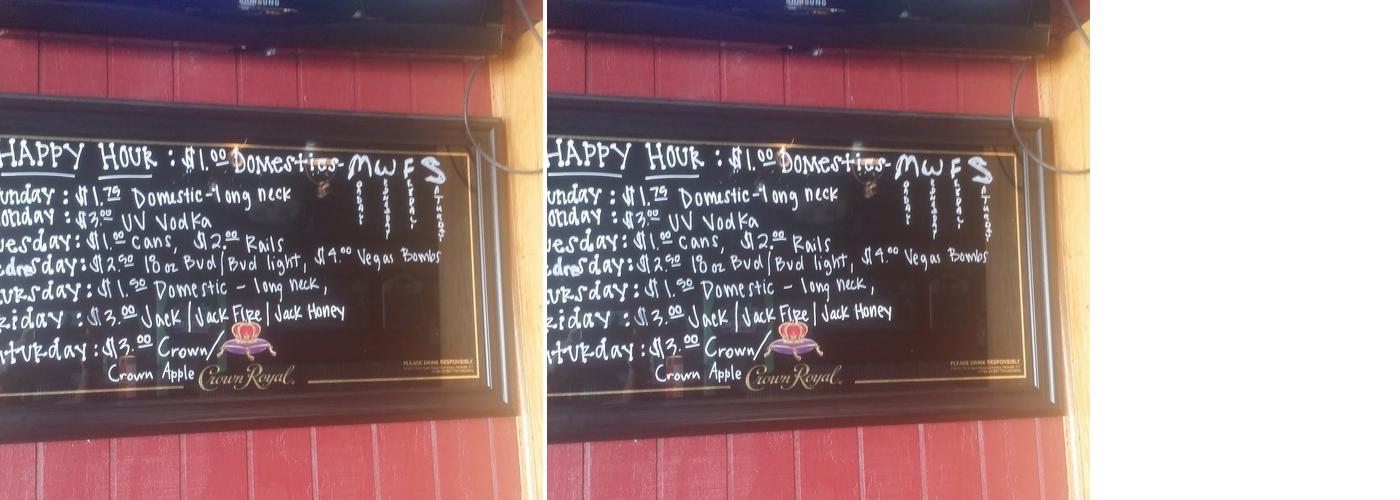 SAMSUNG
HAPPY HOUR : $1.00 Domestics- MONDAY WEDNESDAY FRIDAY SATURDAY
unday : $1.75 Domestic - long neck
onday : $3.00 UV Vodka
uesday : $1.00 cans, $2.00 Rails
ednesday : $2.50 18oz Bud/Bud light, $4.00 Vegas Bombs
ursday : $1.50 Domestic - long neck,
riday : $3.00 Jack | Jack Fire | Jack Honey
aturday : $3.00 Crown/
Crown Apple
Crown Royal
PLEASE DRINK RESPONSIBLY.
SAMSUNG
HAPPY HOUR : $1.00 Domestics- MONDAY WEDNESDAY FRIDAY SATURDAY
unday : $1.75 Domestic - long neck
onday : $3.00 UV Vodka
uesday : $1.00 cans, $2.00 Rails
ednesday : $2.50 18oz Bud/Bud light, $4.00 Vegas Bombs
ursday : $1.50 Domestic - long neck,
riday : $3.00 Jack | Jack Fire | Jack Honey
aturday : $3.00 Crown/
Crown Apple
Crown Royal
PLEASE DRINK RESPONSIBLY.